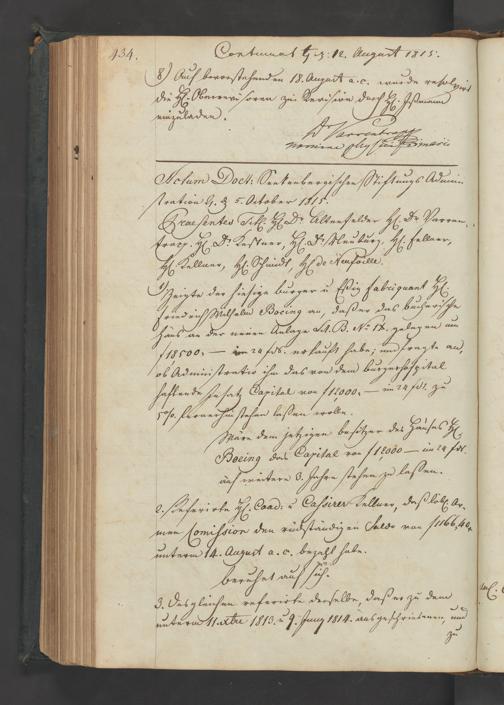 434.
Continuat. G. d. 12. August 1815.
8) Auf bevorstehenden 18. August a. c. wurde resolvirt
die HH. Oberrevisoren zur Revision durch H.
einzuladen.
D Varrentrapp
nomine physici primarii
Actum Doct. Senkenbergischen Stiftungs Admini-
stration G. d. 5. October 1815.
Praesentes Tit. H. Dr. Altenfelder H. Dr Varren-
trapp. H. Dr. Kestner, H. Dr. Neuburg, H. Fellner,
H. Kellner, H. Schmidt, H. de Neufville.
1) Zeigte der hiesige burger u. Essig fabriquant H.
Friedrich Wilhelm Boeing an, daß er das
Haus an der neuen Anlage Lit. B. No. 18. gelegen um
f 18,500.— in 24 fl. erkauft habe; und fragte an,
ob Administratio ihm das von dem burgerhospital
haftende Insatz Capital von f 12000.— in 24 fl. zu
5 %. fernerhin stehen lassen wolle.
Wäre dem jetzigen besitzer des Hauses H.
Boeing das Capital von f 12000— in 24 fl.
auf weitere 3. Jahre stehen zu lassen.
2. Referirte H. Coad: u Cassirer Kellner, daß löbl. Ar-
men Comission den rückständigen Saldo von f 1166,40x
unterm 14. August a. c. bezahlt habe.
beruhet auf sich.
3. Desgleichen referirte derselbe, daß er zu dem
unterm 11. 1813. u 9. Juny 1814. ausgeschriebenen, und
zu